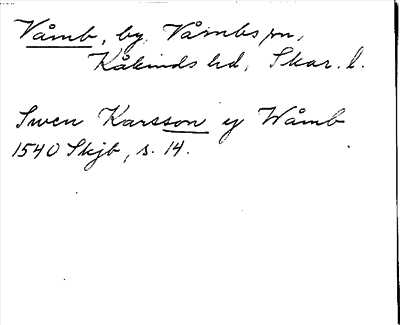 Våmb, by. Våmbs sn,
Kåkinds hd, Skar. l.
Swen Karsson y Wåmb
1540 Skjb, s. 14.